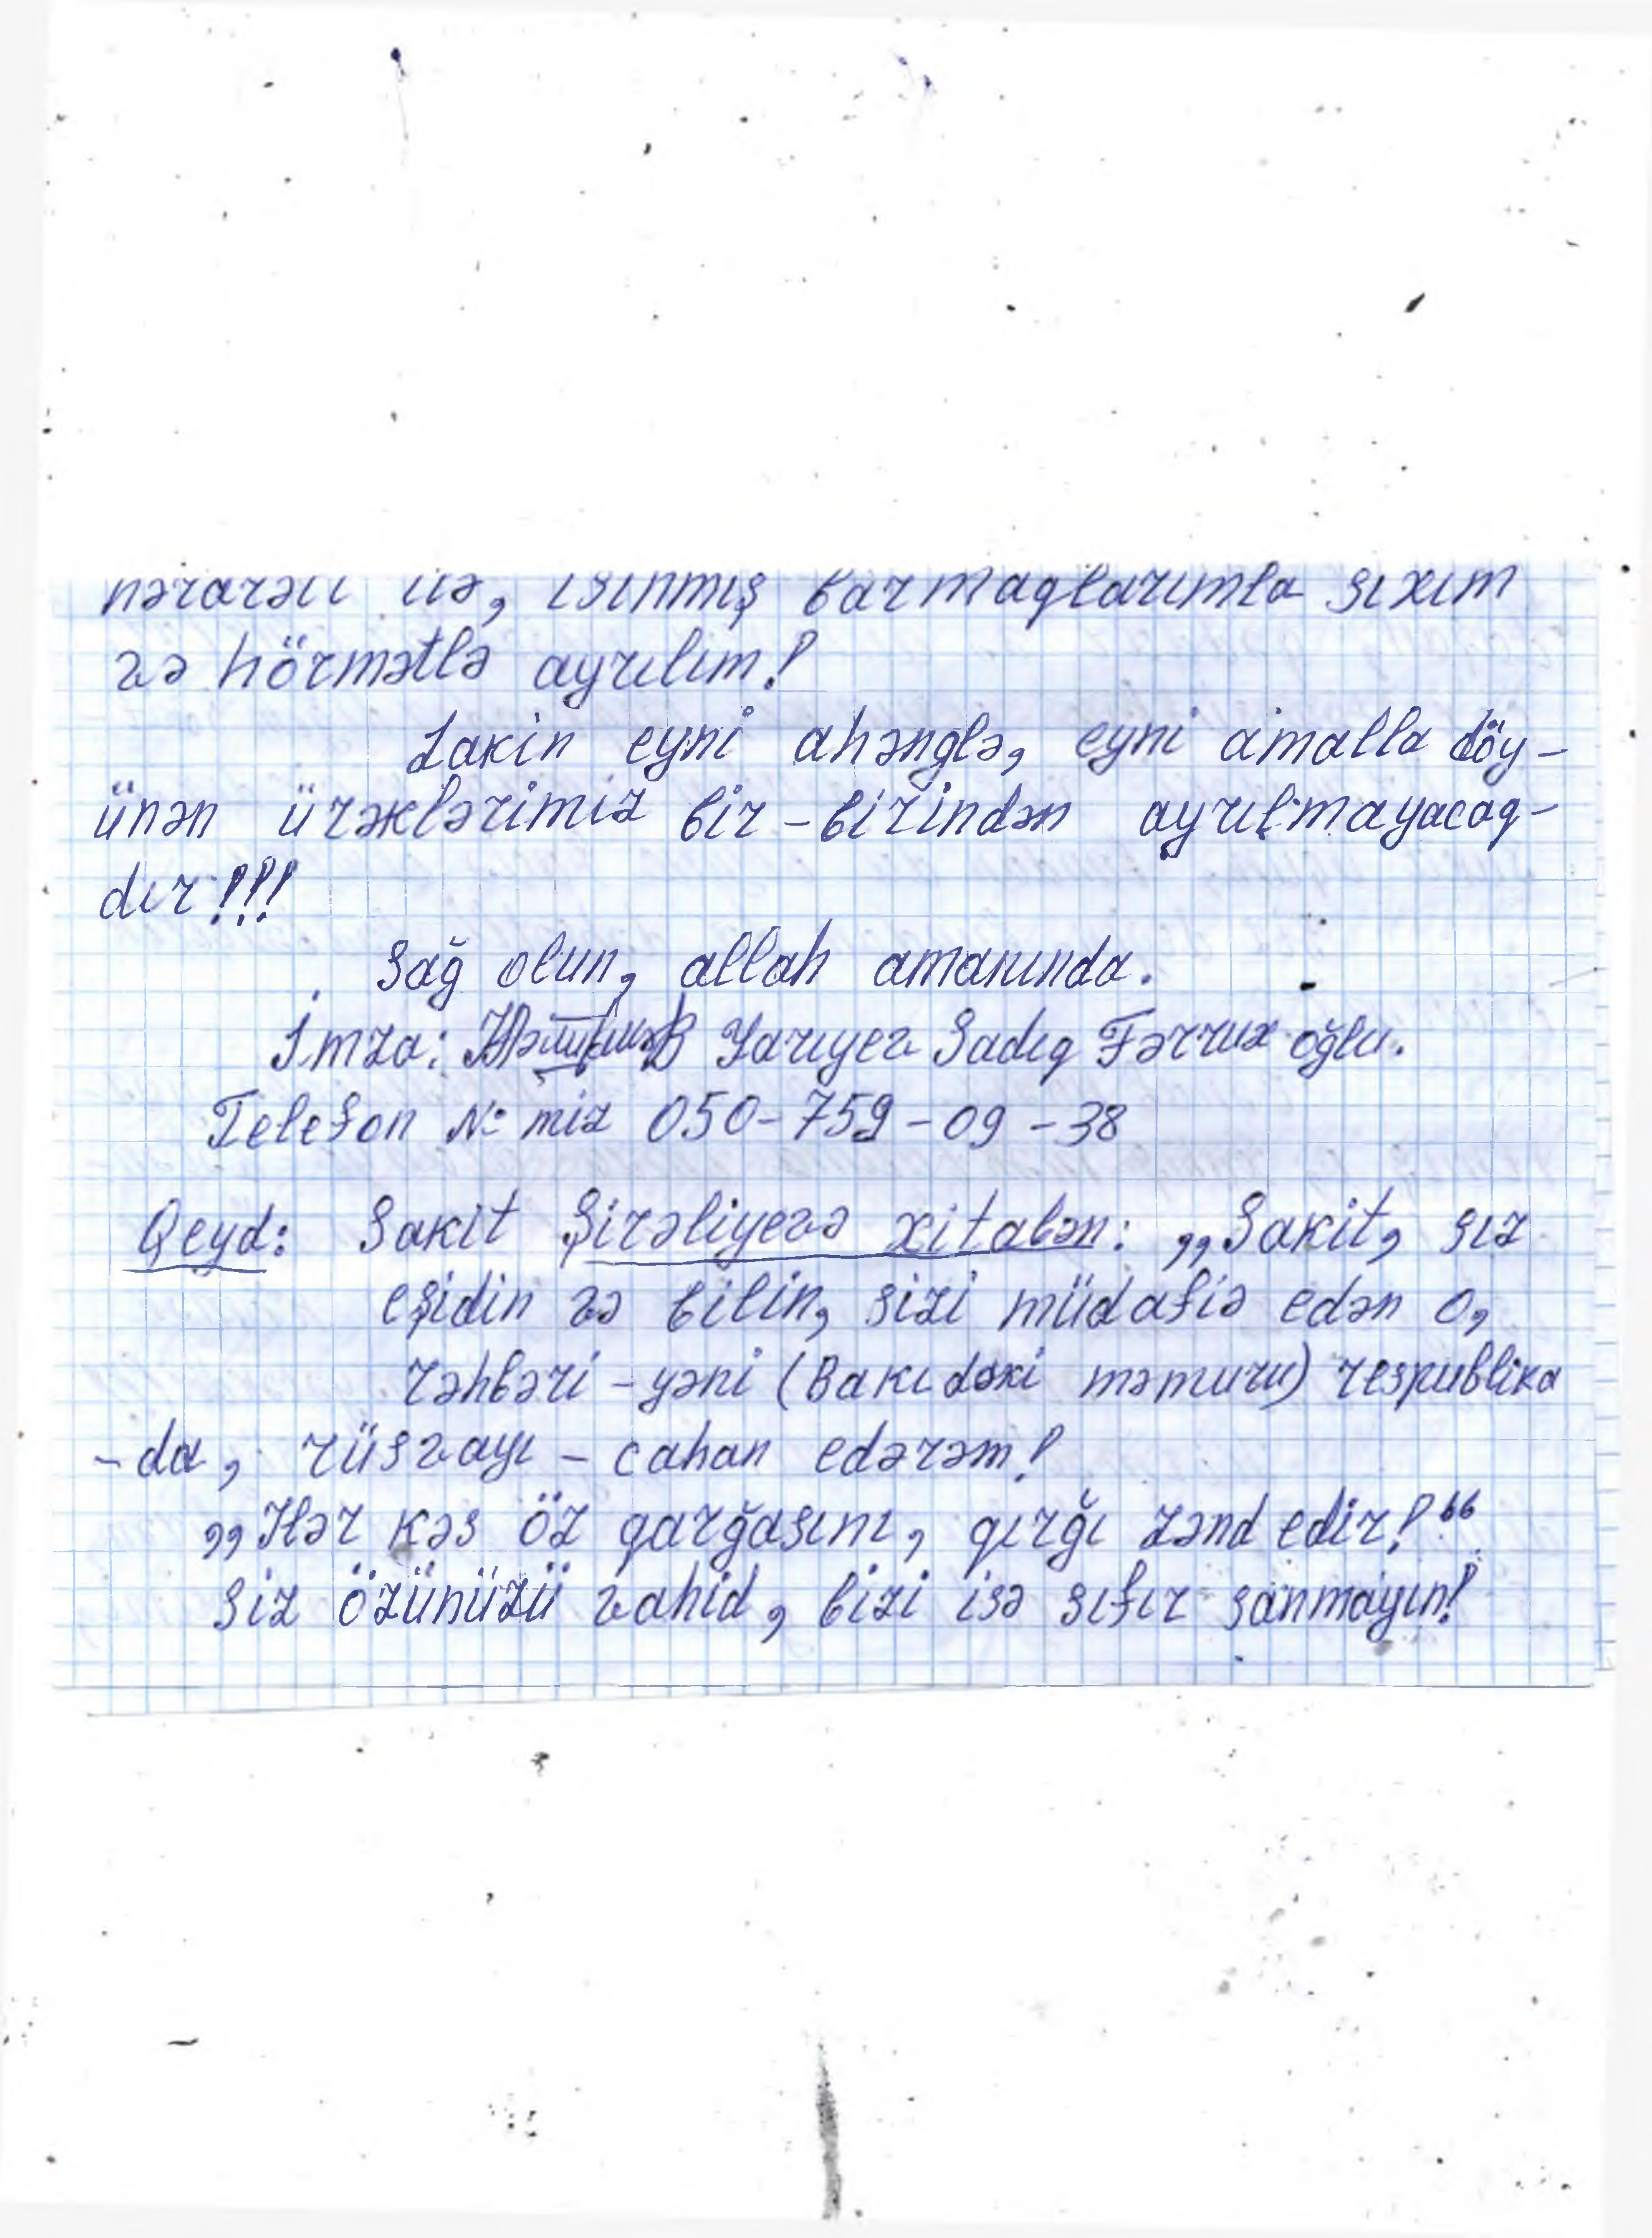 hərarəti ilə, isinmiş barmaqlarımla sıxım
və hörmətlə ayrılım!
Lakin eyni ahənglə, eyni amalla döy-
ünən ürəklərimiz bir-birindən ayrılmayacaq-
dır!!!
Sağ olun, allah amanında.
İmza: Yarıyev Sadıq Fərrux oğlu.
Telefon № miz 050-759-09-38
Qeyd: Sakit Şirəliyevə xitabən: „Sakit, siz
eşidin və bilin, sizi müdafiə edən o,
rəhbəri-yəni (Bakıdəki məmuru) respublika
-da, rüsvayı-cahan edərəm!
„Hər kəs öz qarğasını, qırğı zənd edir!“
Siz özünüzü vahid, bizi isə sıfır sanmayın!